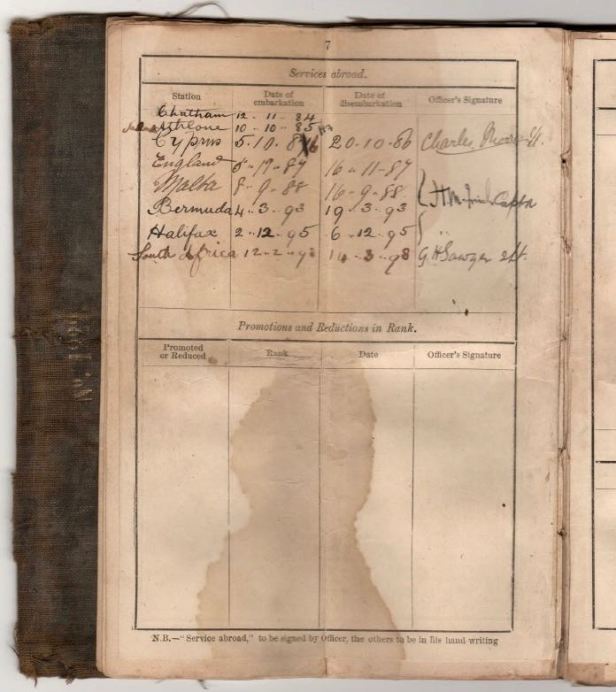 7
Services abroad.
Station Date of embarkation Date of disembarkation Officer's Signature
Chatham 12 . 11 . 84
Athlone 10 . 10 . 85
Cyprus 5 . 10 . 86 20 . 10 . 86 Charles
England 16 . 11 . 87
Malta 8 . 9 . 88 16 . 9 . 88
Bermuda 4 . 3 . 93 19 . 3 . 93
Halifax 2 . 12 . 95 6 . 12 . 95 "
South Africa 12 . 2 . 98 14 . 3 . 98 G H Sawyer
Promotions and Reductions in Rank.
Promoted or Reduced Rank Date Officer's Signature
N.B.—"Service abroad," to be signed by Officer, the others to be in his hand-writing